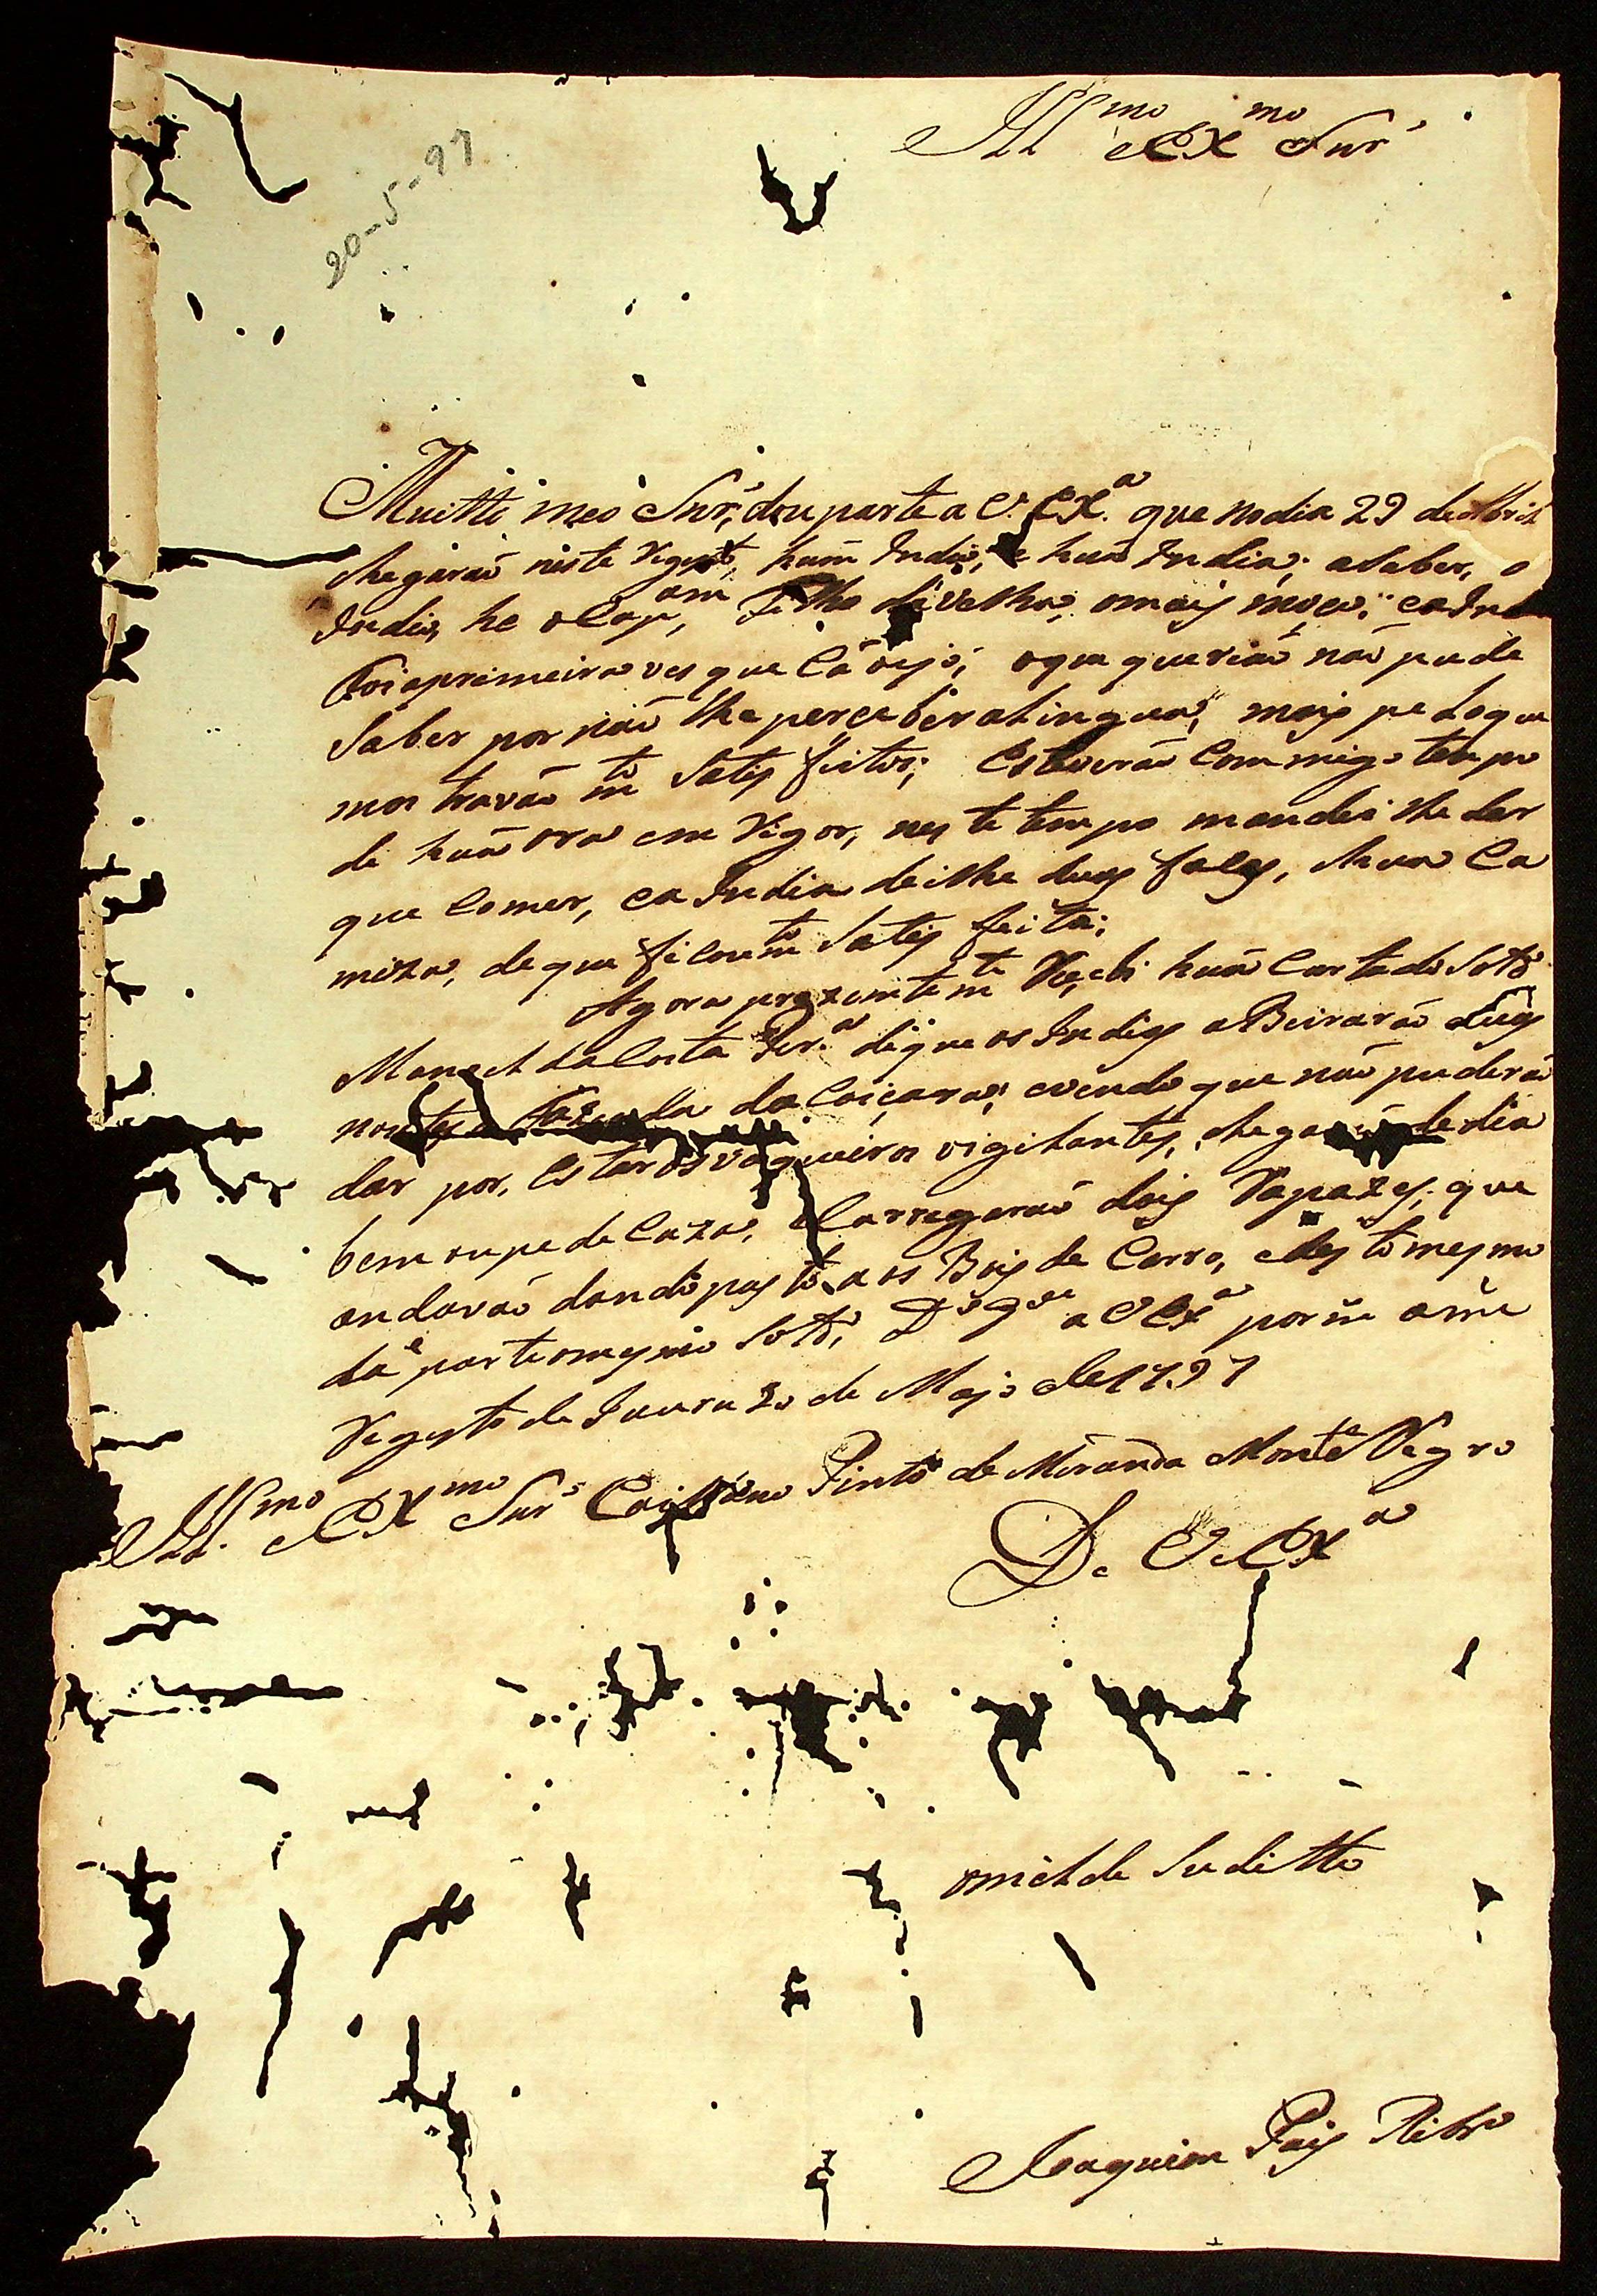 Ill.mo e Ex.mo Snr'
20-5-97
Muitto meo Snr', dou parte a V. Ex.a que no dia 29 de Abril
chegaraõ neste Regisº, hum Indio, e huã India; a Saber, o
Indio, he o Cap.am, Filho di velho, o mais moço; e a Ind
foi a primeira ves que Cá vejo; o que queriaõ naõ pude
Saber por naõ lhe perçeber a lingua; mais pelo que
mos travaõ m.to Satis feitos; Estiveraõ Com migo tempo
de huã ora em Rigor, nes te tempo mandei lhe dar
que Comer, e a India dei lhe duas saĩas, e hua Ca
miza, de que ficou m.to Satis feita;
Agora prezentem.te Reçebi huã Carta do Sotº
Manoel da Costa Per.a di que os Indios a Beiraraõ duas
noites a Fazenda da Caiçara; e vendo que naõ puderaõ
dar por, Estar os vaqueiros vigilantes, chegaraõ de dia
bem ao pe de Caza, e Carregaraõ dois Rapazes; que
andavaõ dando pas to a os Bois de Carro, e des to mesmo
dá parte o mesmo Sotº; D.s g.de a V Ex.a por m.s an.s
Registo de Jauru 20 de Majo de 1797
Ill.mo e Ex.mo Snr' Caijtano Pinto de Miranda Monte Negro
De V Ex.a
omilde Suditto
Joaquim Pais Ribr.o